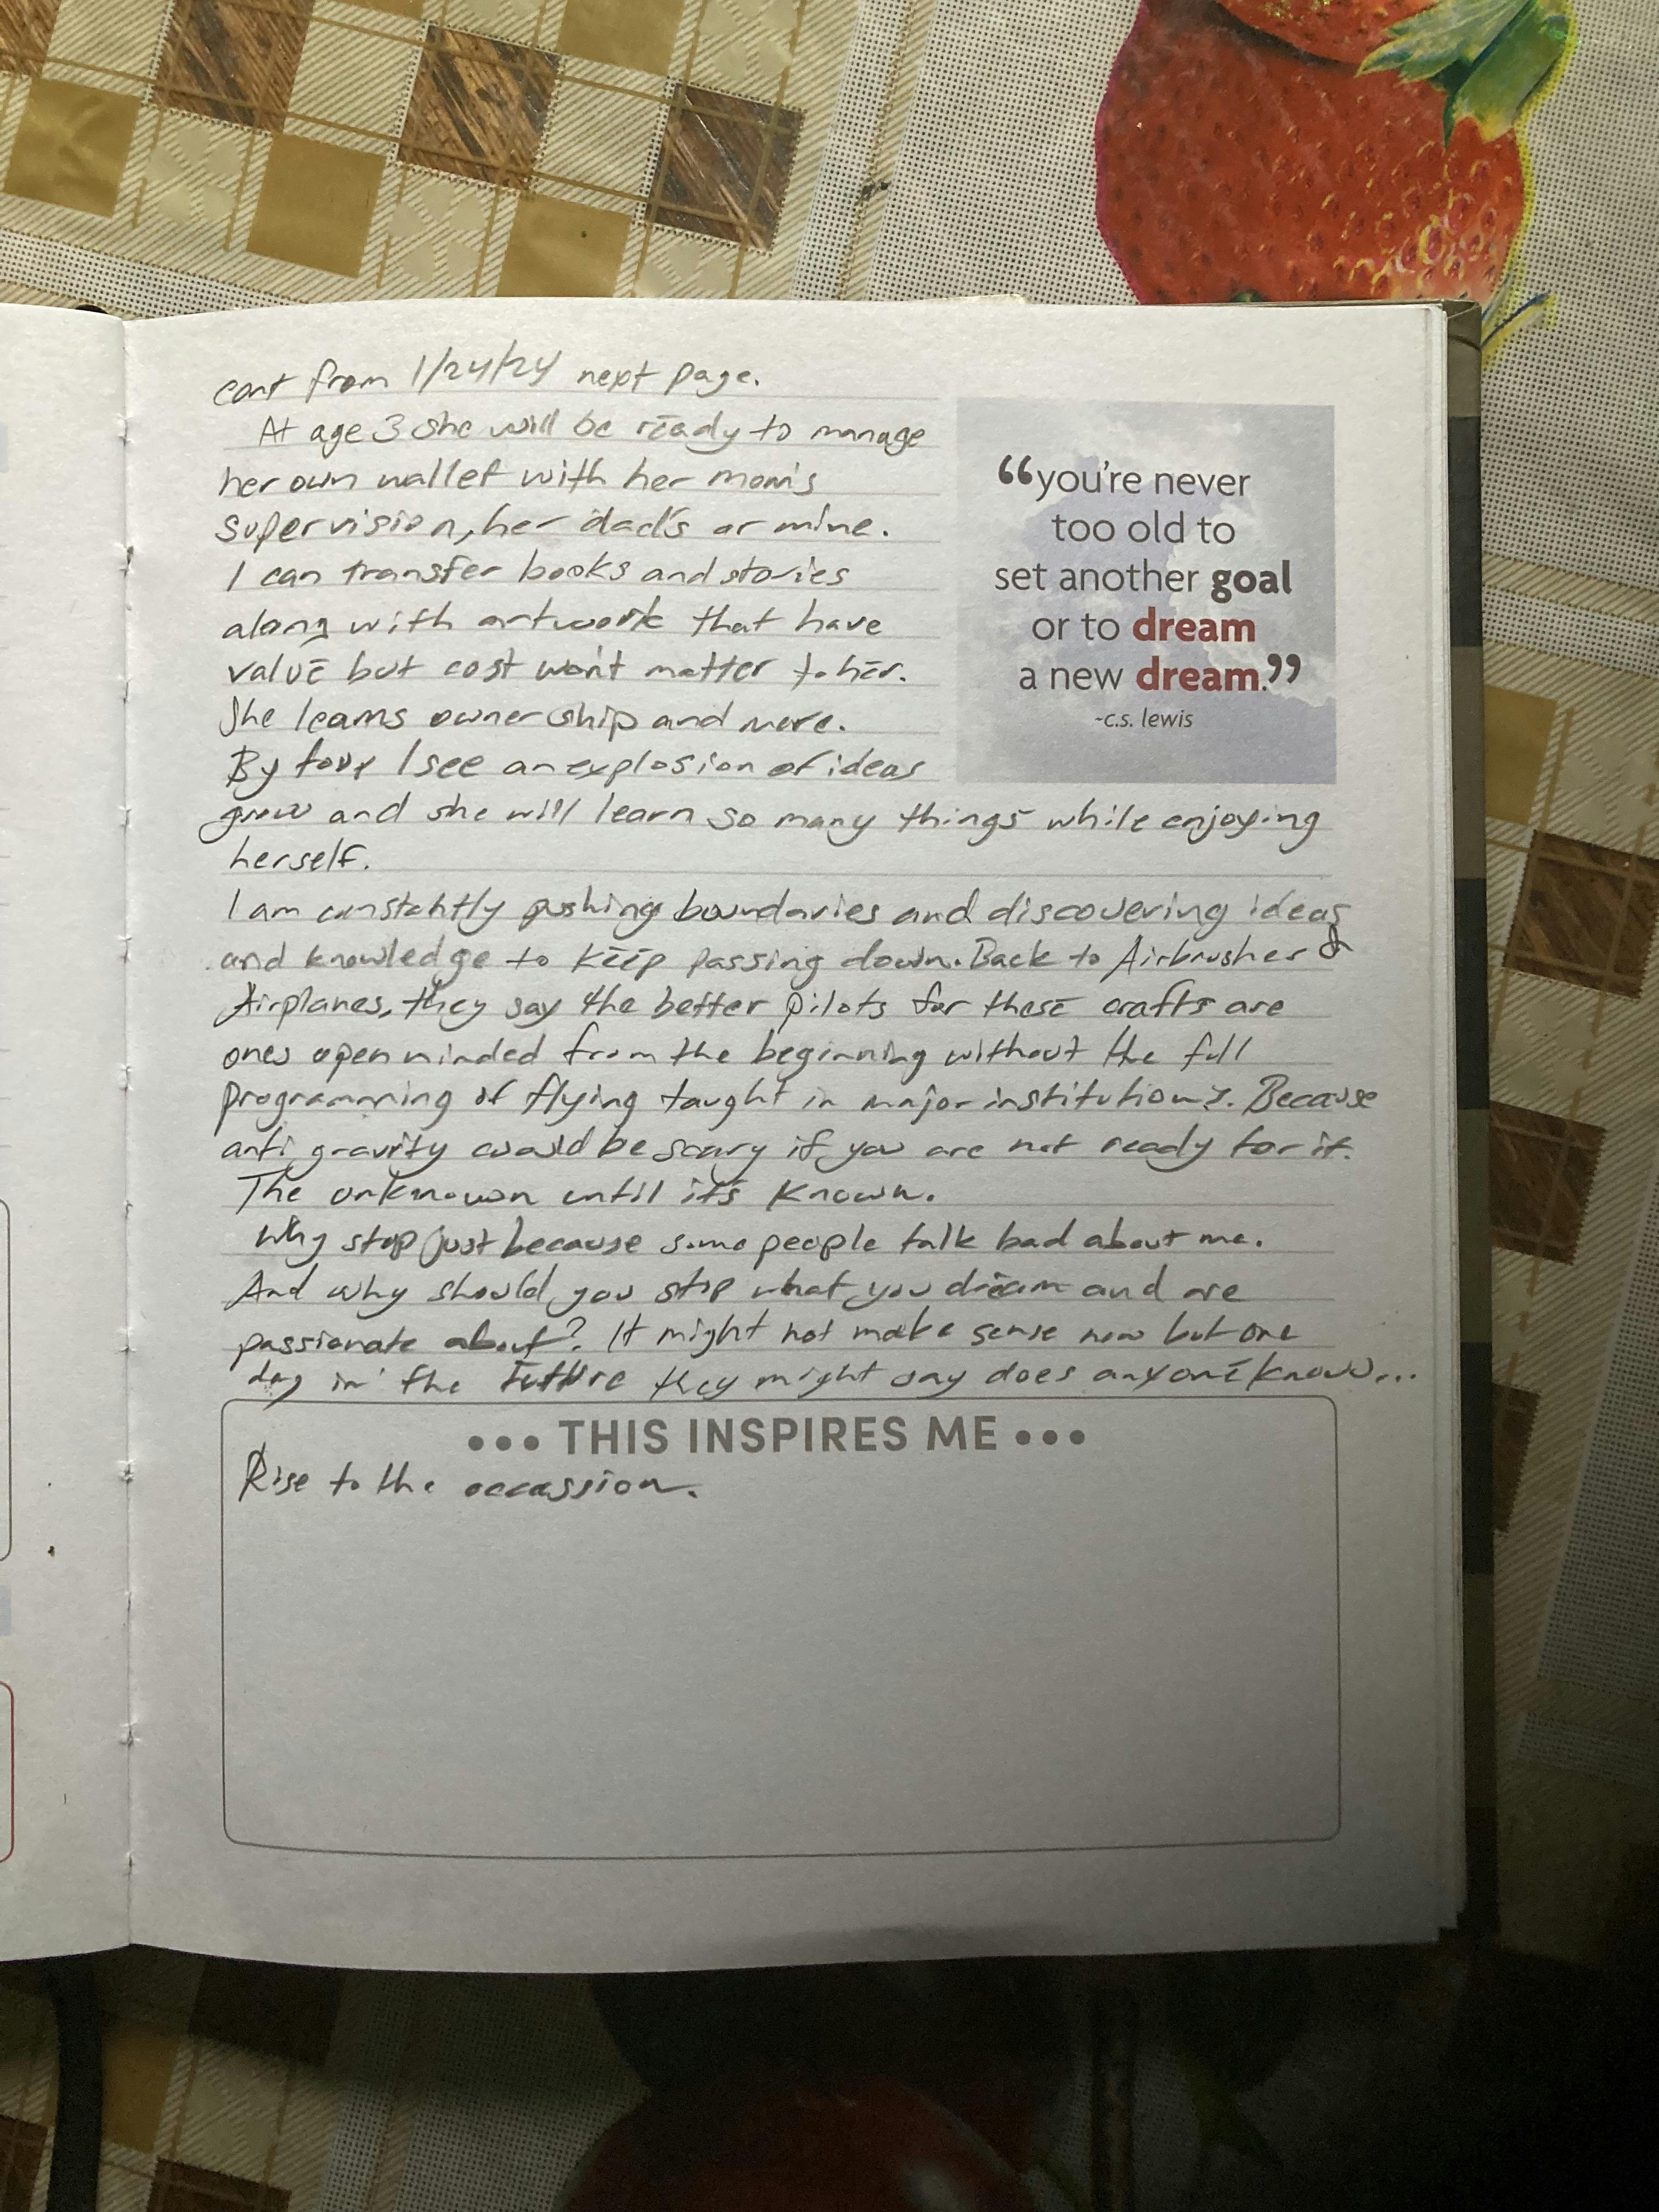 cont from 1/24/24 next page.
At age 3 she will be ready to manage
her own wallet with her mom's
supervision, her dad's or mine.
I can transfer books and stories
along with artwork that have
value but cost won't matter to her.
She learns ownership and more.
By four I see an explosion of ideas
grow and she will learn so many things while enjoying
herself.
I am constantly pushing boundaries and discovering ideas
and knowledge to keep passing down. Back to Airbrushes &
Airplanes, they say the better pilots for these crafts are
ones open minded from the beginning without the full
programming of flying taught in major institutions. Because
anti gravity could be scary if you are not ready for it.
The unknown until it's known.
Why stop just because some people talk bad about me.
And why should you stop what you dream and are
passionate about? It might not make sense now but one
day in the future they might say does anyone know...
"you're never
too old to
set another goal
or to dream
a new dream."
~c.s. lewis
••• THIS INSPIRES ME •••
Rise to the occassion.